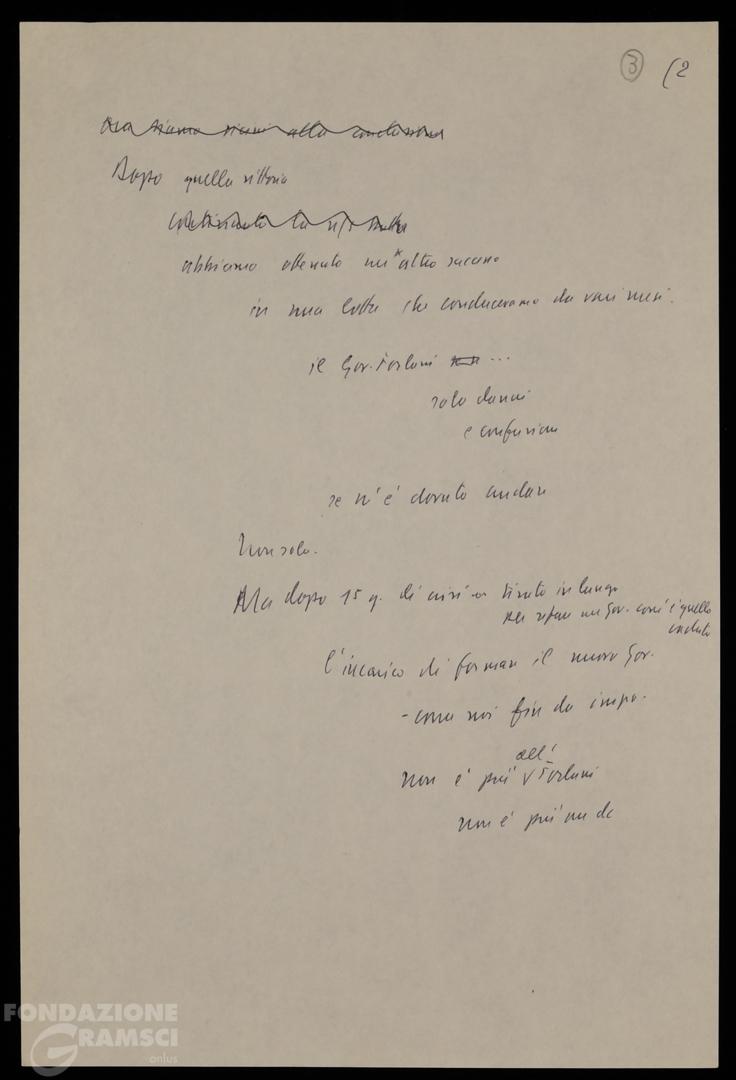 3 (2
Ma siamo vicini alla conclusione
Dopo quella vittoria
abbiamo ottenuto un altro successo
in una lotta che conducevamo da vari mesi.
il Gov. Forlani ...
solo danni
e confusione
se n'è dovuto andare
Non solo.
Ma dopo 15 g. di crisi tirata in lunga
per rifare un Gov. com'è quello
caduto
l'incarico di formare il nuovo Gov.
- come noi fin da
all'
non è più Forlani
non è più un dc
FONDAZIONE
GRAMSCI
onlus